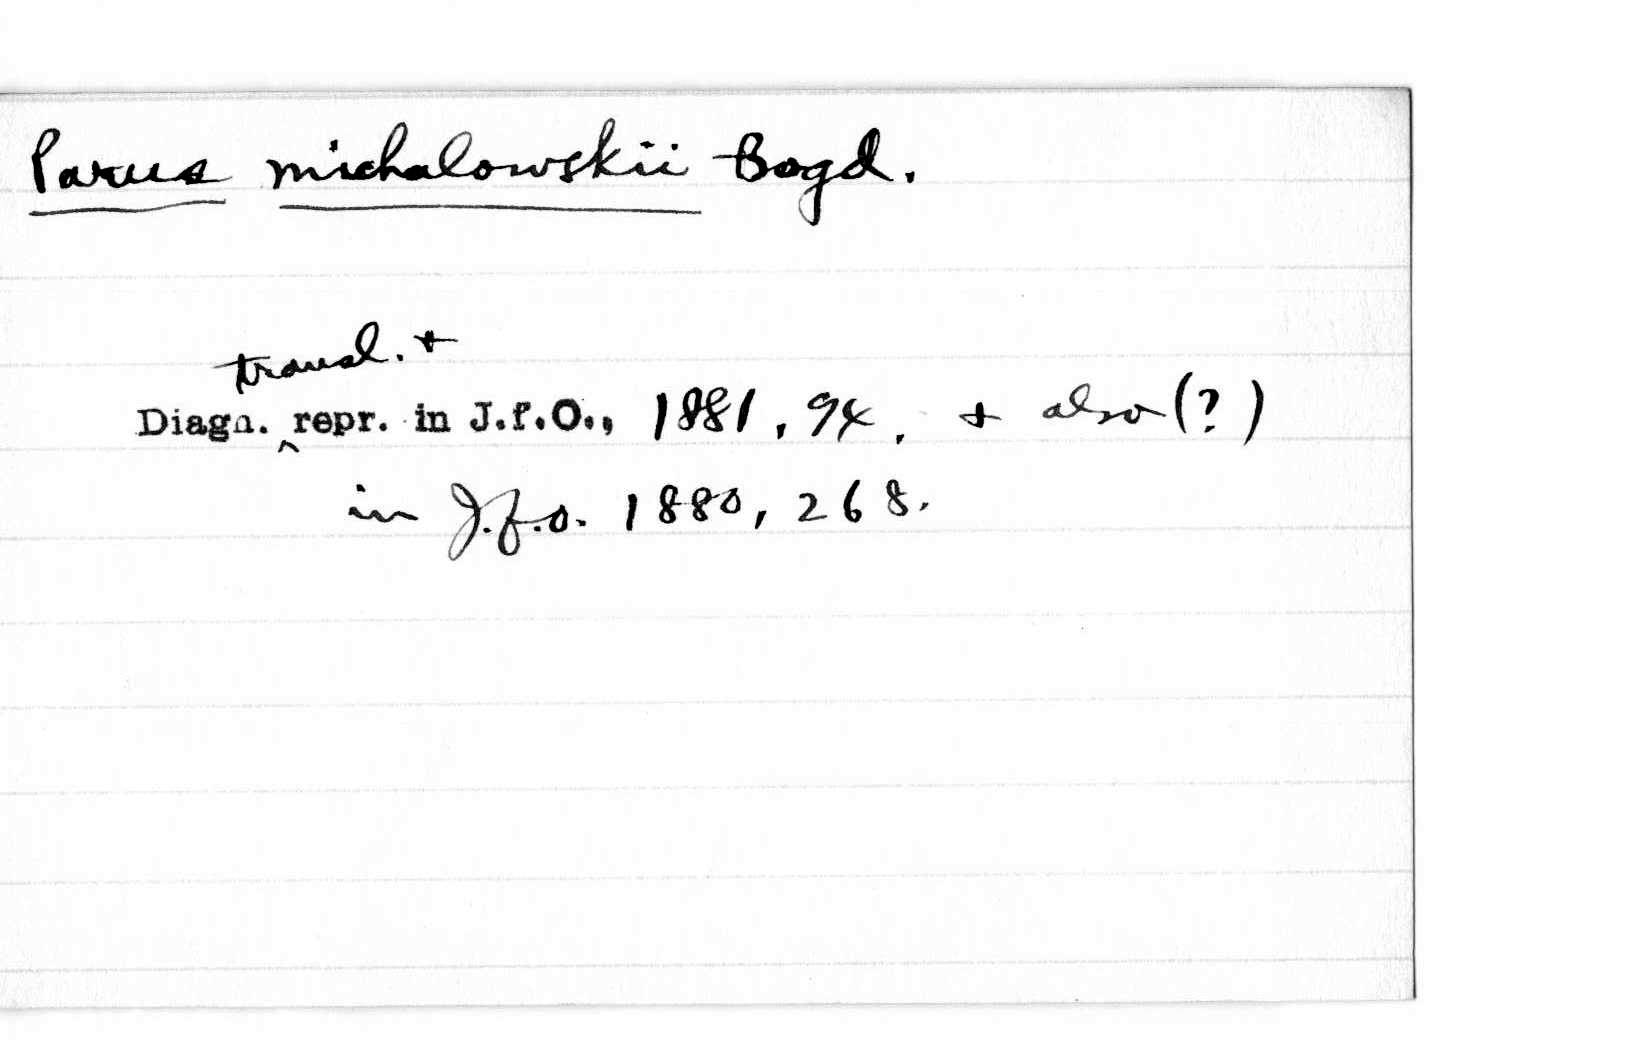 Parus michalowskii Bogd.
transl. +
Diagn. ‸ repr. in J.f.O., 1881, 94, + also (?)
in J.f.O. 1880, 268.